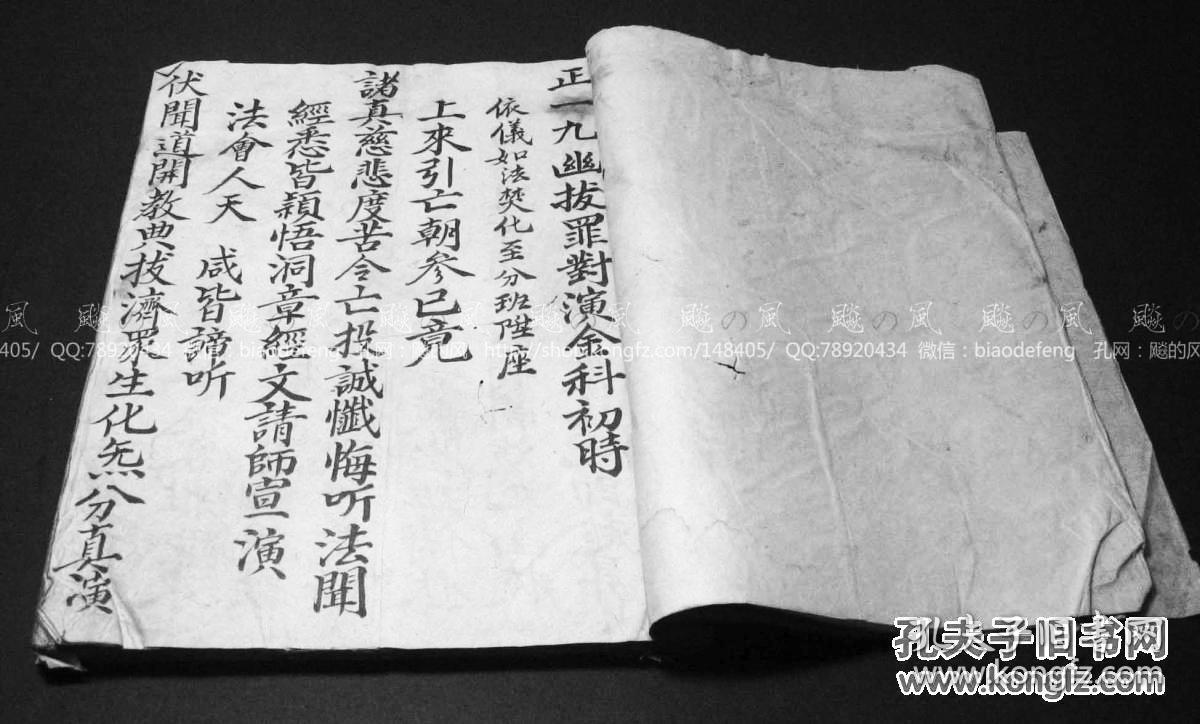 正一九幽拔罪對演金科初時
依儀如法焚化至分班陞座
上來引亡朝參已竟
諸真慈悲度苦令亡投誠懺悔听法聞
經悉皆穎悟洞章經文請師宣演
法會人天 咸皆諦听
伏聞道開教典拔濟眾生化炁分真演
風 飈の風 飈の風 飈の風 飈の風
148405/ QQ:78920434 微信：biaodefeng 孔网：飈的风 http://shop.kongfz.com/148405/ QQ:78920434 微信：biaodefeng 孔网：飈的风
孔夫子旧书网
www.kongfz.com